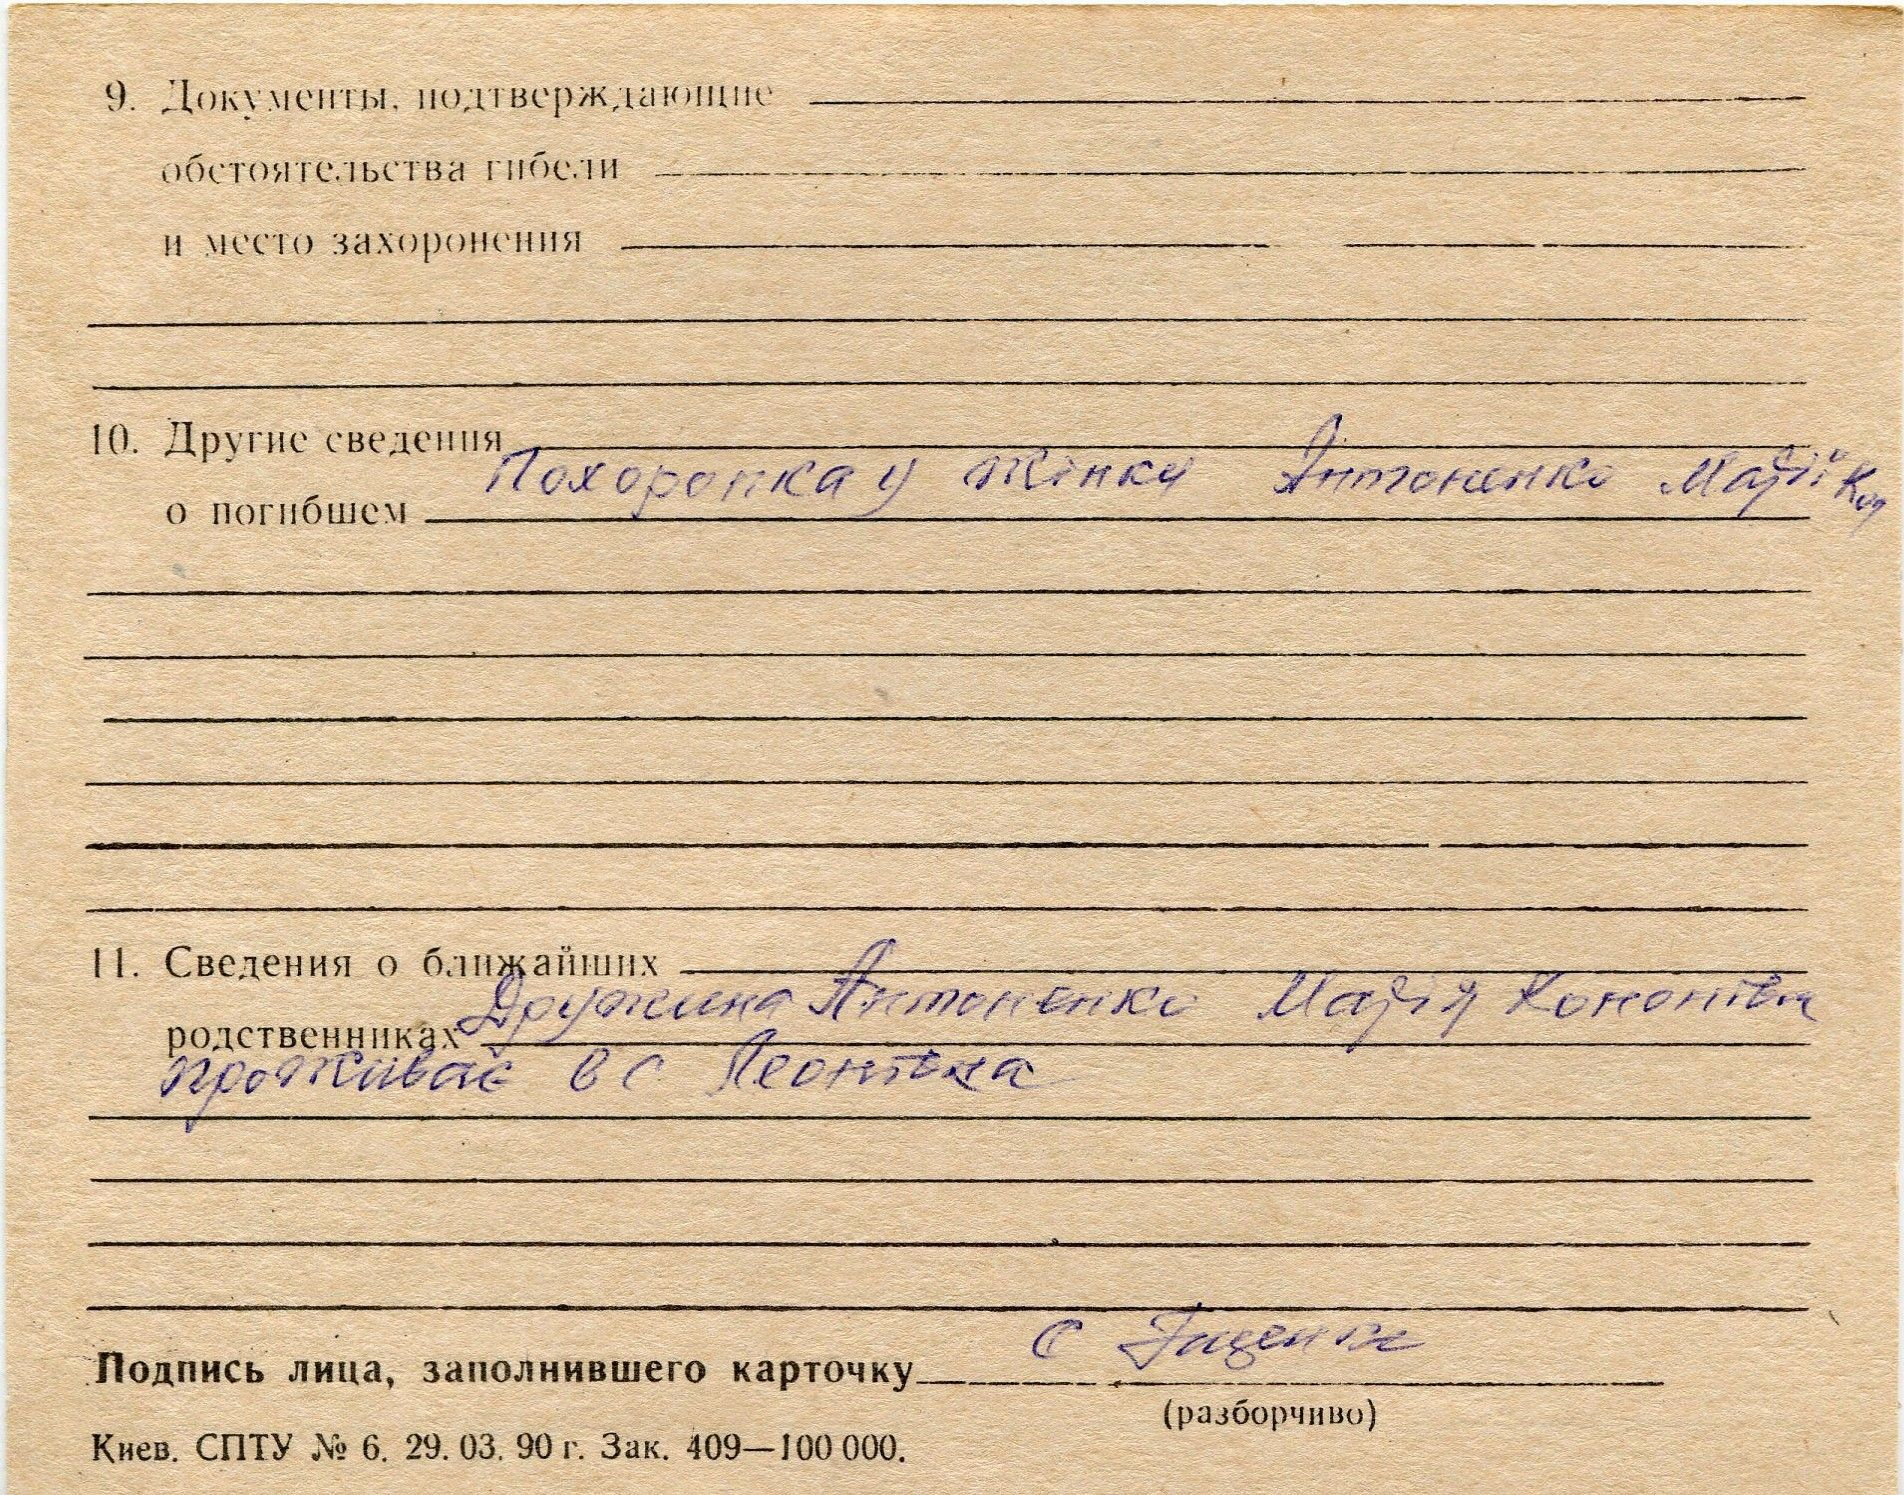 9. Документы, подтверждающие
обстоятельства гибели
и место захоронения
10. Другие сведения
Похоронка у жінки Антоненко Марії
о погибшем
11. Сведения о ближайших
Дружина Антоненко Марія Кононівна
родственниках
проживає в с Леонівка
Подпись лица, заполнившего карточку С
(разборчиво)
Киев. СПТУ № 6. 29. 03. 90 г. Зак. 409—100 000.